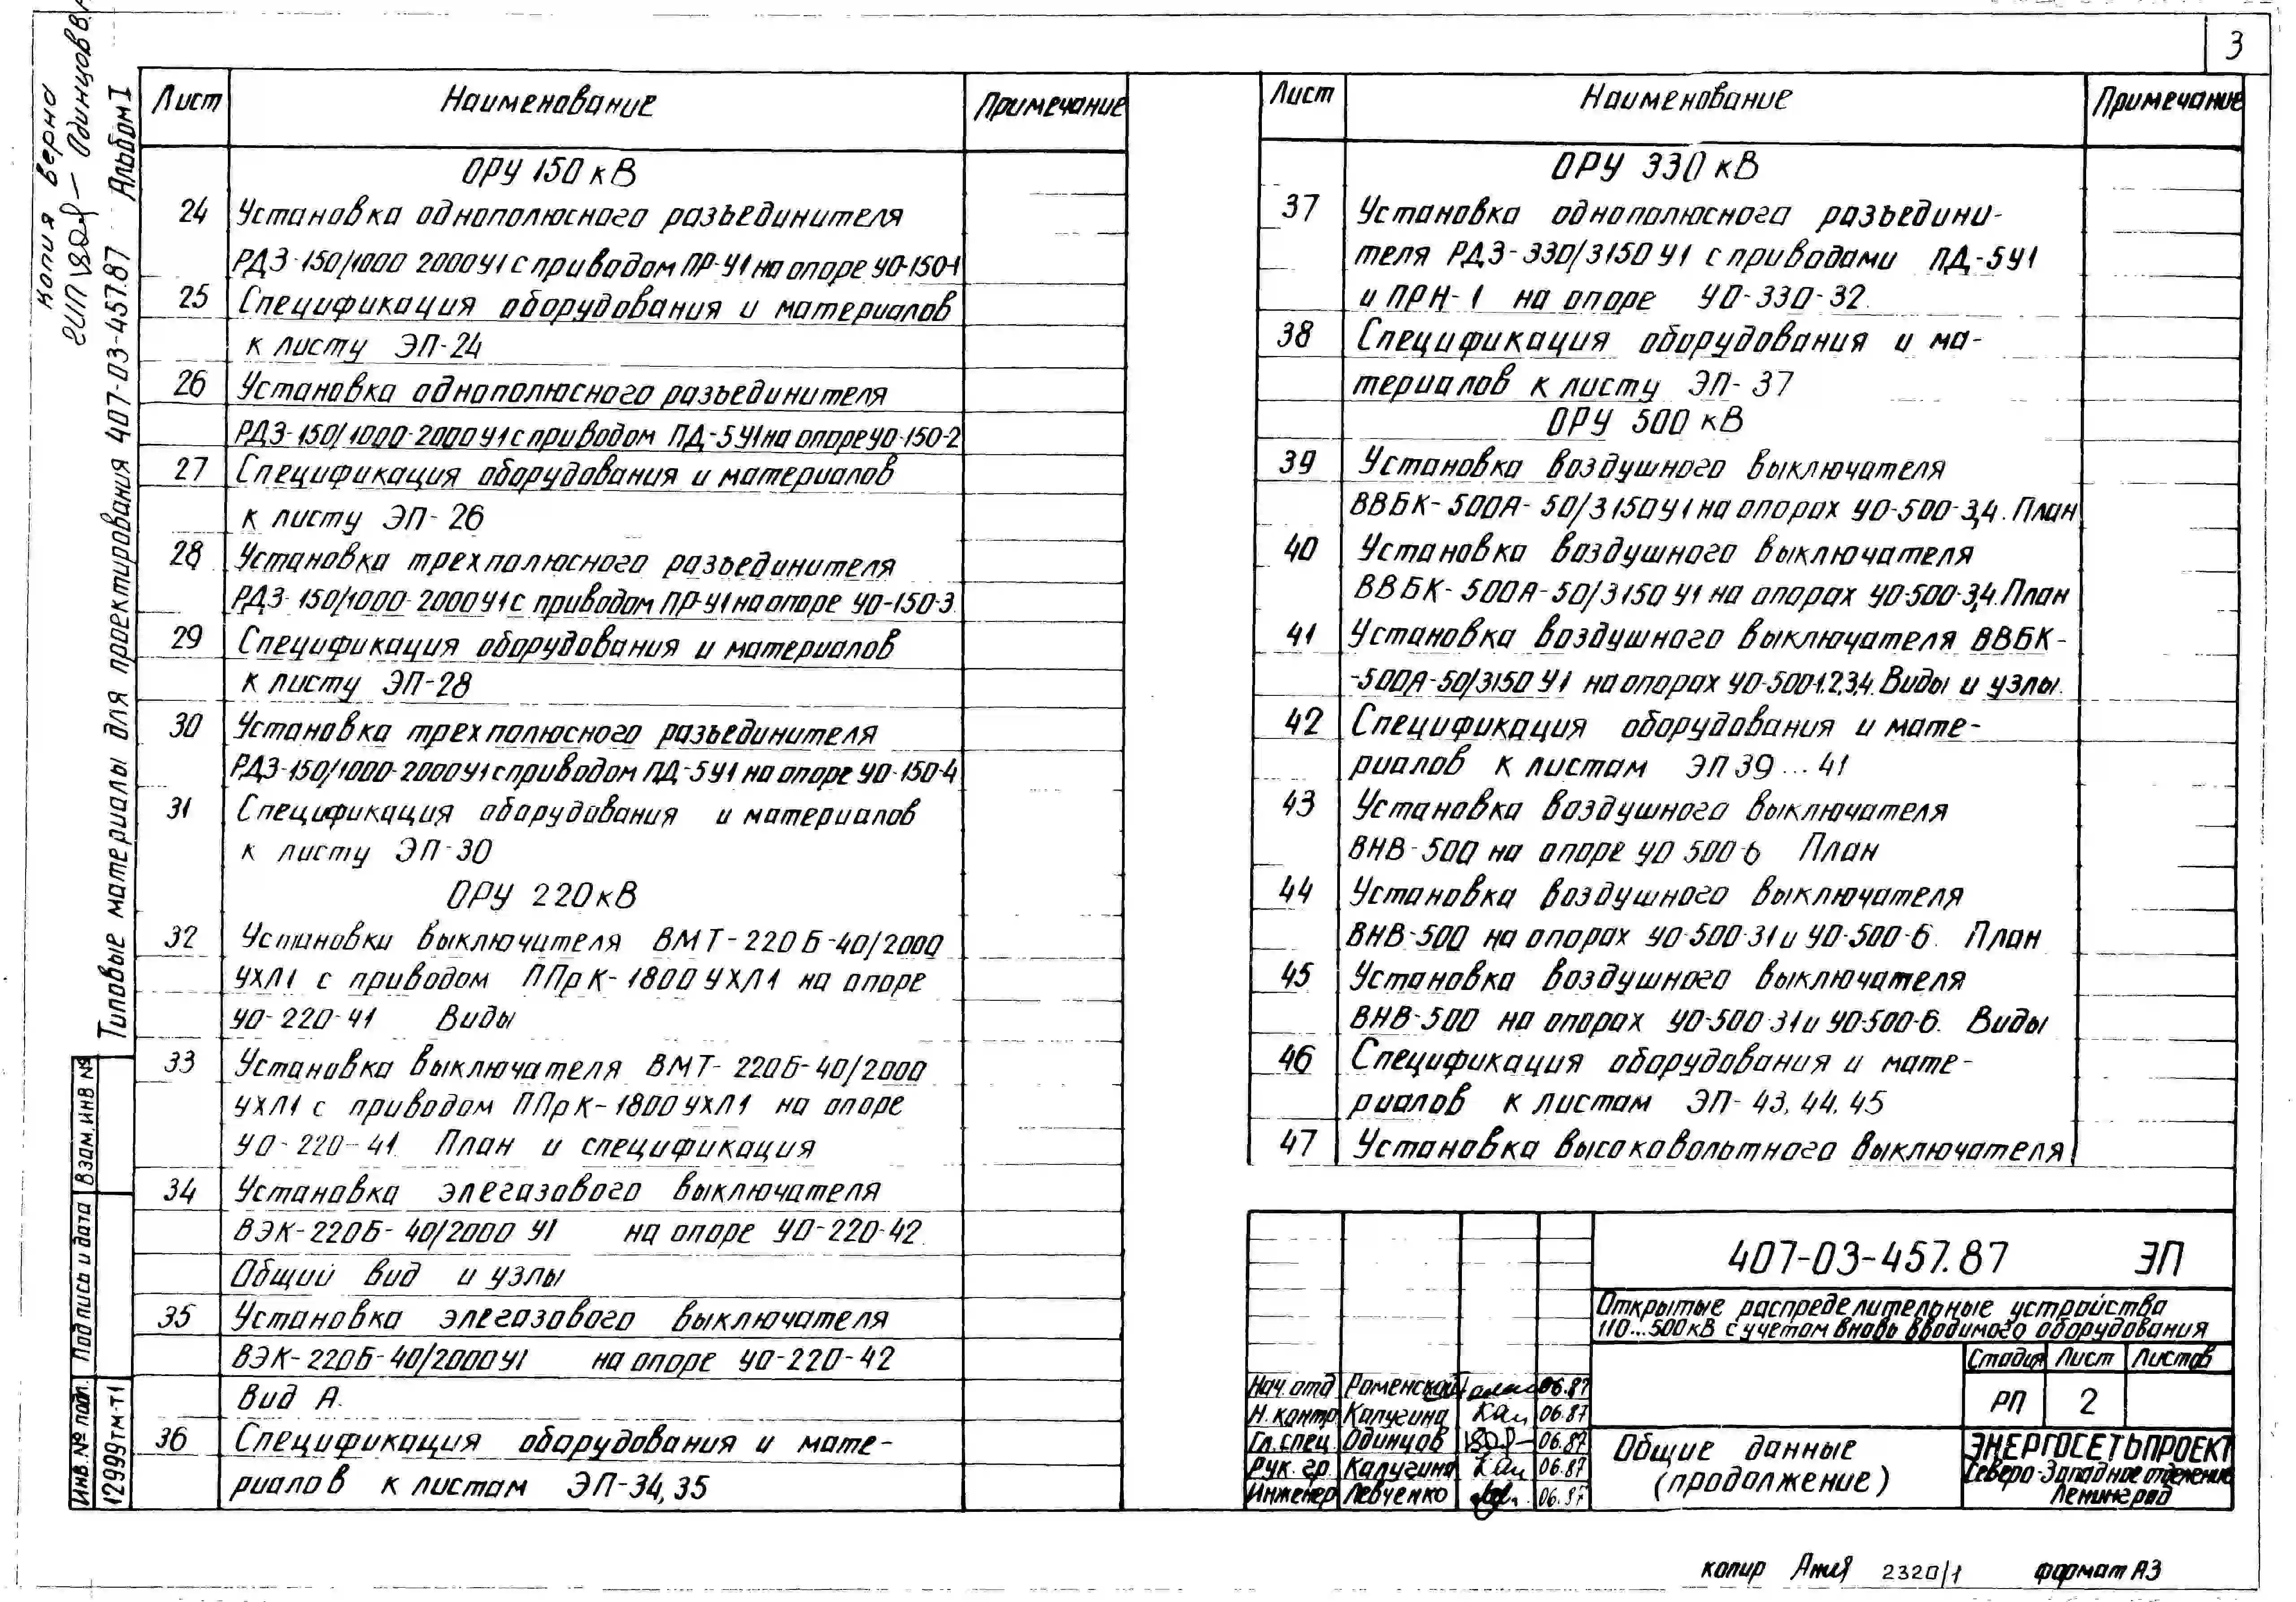 3
копия верна
ГИП — Одинцов В.А
Типовые материалы для проектирования 407-03-457.87 Альбом I
Лист Наименование Примечание
ОРУ 150 кВ
24 Установка однополюсного разъединителя
РДЗ-150/1000 2000У1 с приводом ПР-У1 на опоре УО-150-1
25 Спецификация оборудования и материалов
к листу ЭП-24
26 Установка однополюсного разъединителя
РДЗ-150/1000-2000У1 с приводом ПД-5У1 на опоре УО-150-2
27 Спецификация оборудования и материалов
к листу ЭП-26
28 Установка трехполюсного разъединителя
РДЗ-150/1000-2000У1 с приводом ПР-У1 на опоре УО-150-3
29 Спецификация оборудования и материалов
к листу ЭП-28
30 Установка трехполюсного разъединителя
РДЗ-150/1000-2000У1 с приводом ПД-5У1 на опоре УО-150-4
31 Спецификация оборудования и материалов
к листу ЭП-30
ОРУ 220 кВ
32 Установки выключателя ВМТ-220Б-40/2000
УХЛ1 с приводом ППрК-1800 УХЛ1 на опоре
УО-220-41 Виды
33 Установка выключателя ВМТ-220Б-40/2000
УХЛ1 с приводом ППрК-1800УХЛ1 на опоре
УО-220-41. План и спецификация
34 Установка элегазового выключателя
ВЭК-220Б-40/2000 У1 на опоре УО-220-42.
Общий вид и узлы
35 Установка элегазового выключателя
ВЭК-220Б-40/2000У1 на опоре УО-220-42
Вид А.
36 Спецификация оборудования и мате-
риалов к листам ЭП-34,35
Лист Наименование Примечание
ОРУ 330 кВ
37 Установка однополюсного разъедини-
теля РДЗ-330/3150 У1 с приводами ПД-5У1
и ПРН-1 на опоре УО-330-32.
38 Спецификация оборудования и ма-
териалов к листу ЭП-37
ОРУ 500 кВ
39 Установка воздушного выключателя
ВВБК-500А-50/3150У1 на опорах УО-500-3,4. План
40 Установка воздушного выключателя
ВВБК-500А-50/3150 У1 на опорах УО-500-3,4.План
41 Установка воздушного выключателя ВВБК-
-500А-50/3150 У1 на опорах УО-500-1,2,3,4. Виды и узлы.
42 Спецификация оборудования и мате-
риалов к листам ЭП 39...41
43 Установка воздушного выключателя
ВНВ-500 на опоре УО 500-6 План
44 Установка воздушного выключателя
ВНВ-500 на опорах УО-500-31 и УО-500-6. План
45 Установка воздушного выключателя
ВНВ-500 на опорах УО-500-31 и УО-500-6. Виды
46 Спецификация оборудования и мате-
риалов к листам ЭП-43,44,45
47 Установка высоковольтного выключателя
407-03-457.87 ЭП
Открытые распределительные устройства
110...500кВ с учетом вновь вводимого оборудования
Стадия Лист Листов
РП 2
Нач.отд Роменский 06.87
Н.контр. Калугина 06.87
Гл.спец. Одинцов 06.87
Рук.гр. Калугина 06.87
Инженер Левченко 06.87
Общие данные
(продолжение)
ЭНЕРГОСЕТЬПРОЕКТ
Северо-Западное отделение
Ленинград
Взам.инв №
Подпись и дата
Инв.№ подл.
12999тм-т1
копир 2320/1 формат А3